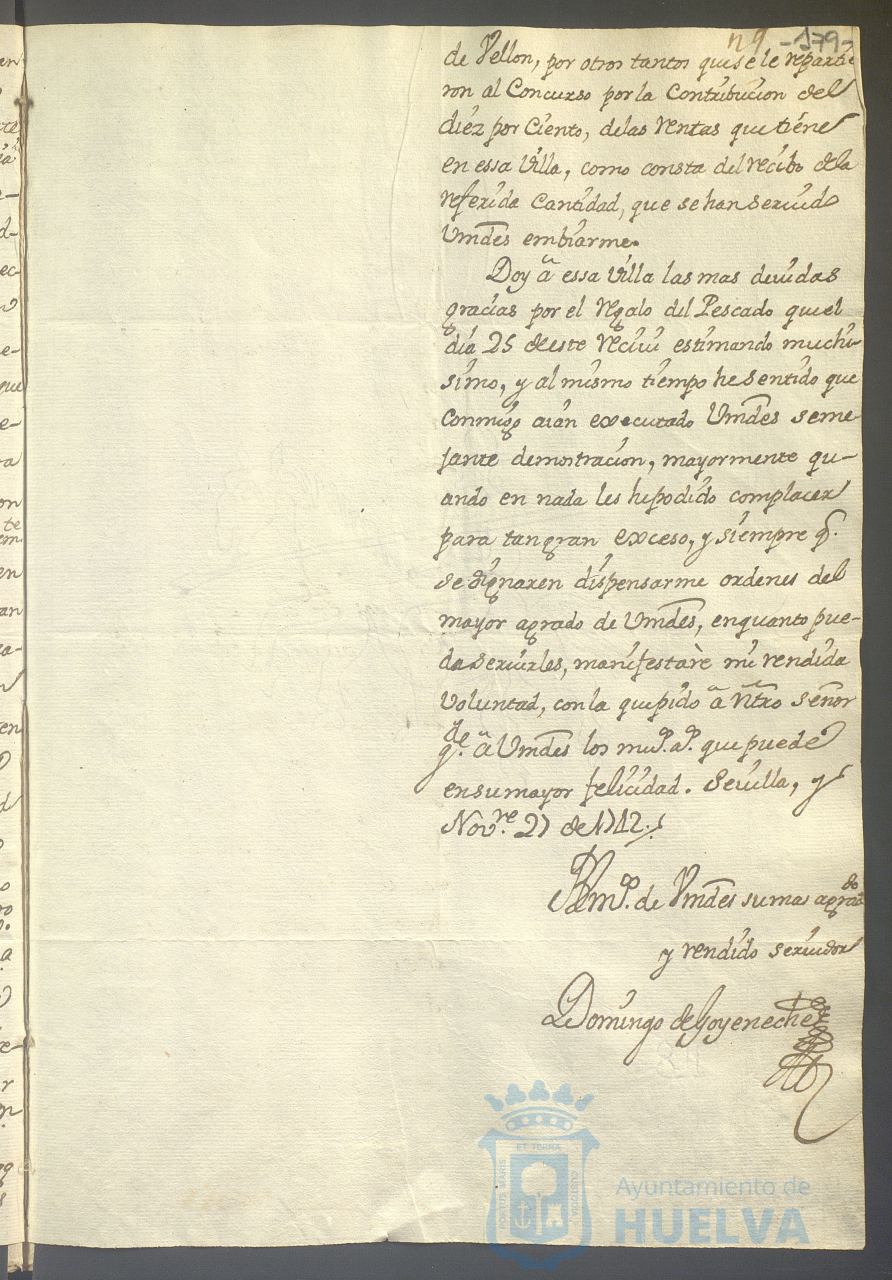 n9 -179-
de Vellon, por otros tantos que se le reparti
ron al Concurso por la Contribucion del
diez por Ciento, de las Rentas que tiene
en essa Villa, como consta del recibo de la
referida Cantidad, que se han seruido
Vmdes embiarme.
Doy â essa Villa las mas deuidas
gracias por el Regalo del Pescado que el
dia 25 de este Reciui estimando muchi-
simo, y al mismo tiempo he sentido que
conmigo aian executado Vmdes seme-
jante demostracion, mayormente qu-
ando en nada les he podido complacer
para tan gran exceso, y siempre q.
se dignaren dispensarme ordenes del
mayor agrado de Vmdes, en quanto pue-
da seruirles, manifestarè mi rendida
Voluntad, con la que pido â Ntro Señor
g.de â Vmdes los mu.s a.s que puede
en su mayor felicidad. Seuilla, y
Nov.re 27 de 1712.
BLm.o de Vmdes su mas agrado
y rendido seruidor
Domingo de Goyeneche
PORTUS MARIS
ET TERRÆ
CUSTODIA
Ayuntamiento de
HUELVA